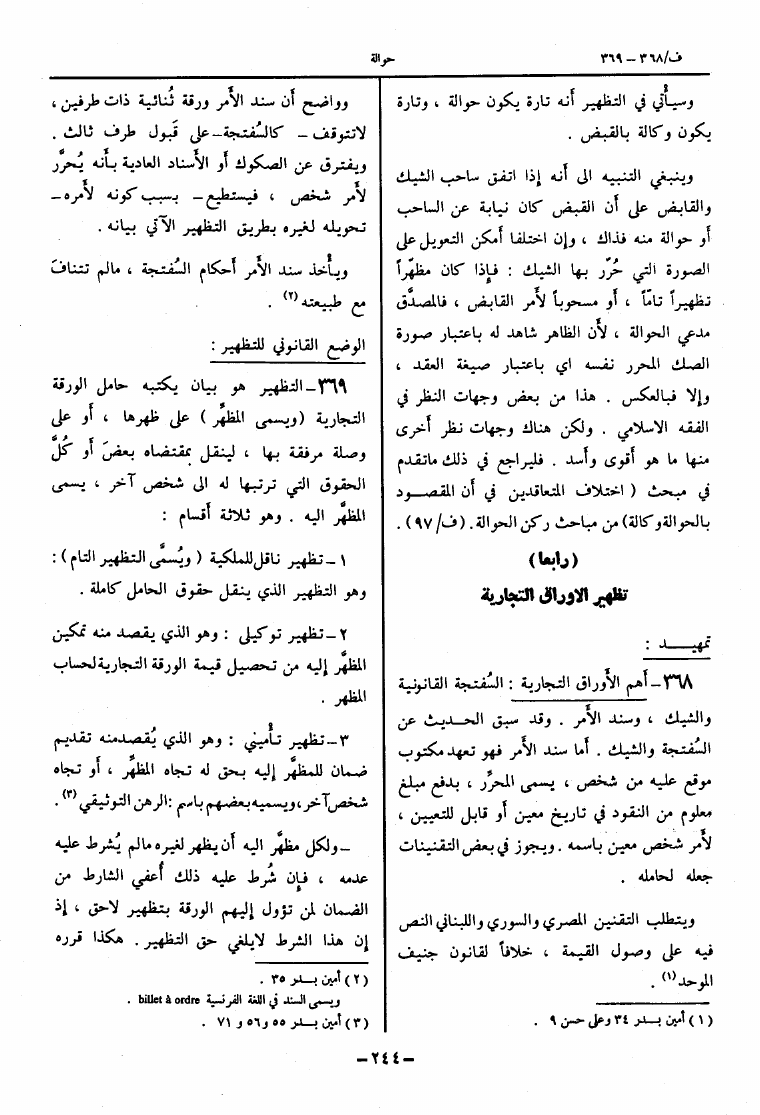 ف/٣٦٨ – ٣٦٩
حوالة
وسيأتي في التظهير أنه تارة يكون حوالة ، وتارة
يكون وكالة بالقبض .
وينبغي التنبيه الى أنه إذا اتفق ساحب الشيك
والقابض على أن القبض كان نيابة عن الساحب
أو حوالة منه فذاك ، وإن اختلفا أمكن التعويل على
الصورة التي حُرّر بها الشيك : فإذا كان مظهّراً
تظهيراً تامّاً ، أو مسحوباً لأمر القابض ، فالمصدَّق
مدعي الحوالة ، لأن الظاهر شاهد له باعتبار صورة
الصك المحرر نفسه اي باعتبار صيغة العقد ،
وإلا فبالعكس . هذا من بعض وجهات النظر في
الفقه الاسلامي . ولكن هناك وجهات نظر أخرى
منها ما هو أقوى وأسد . فليراجع في ذلك ماتقدم
في مبحث ( اختلاف المتعاقدين في أن المقصــود
بالحوالة وكالة) من مباحث ركن الحوالة . (ف/٩٧) .
(رابعا)
تظهير الاوراق التجارية
تمهيـــد :
٣٦٨ – أهم الأوراق التجارية : السُفتجة القانونية
والشيك ، وسند الأمر . وقد سبق الحــديث عن
السُفتجة والشيك . أما سند الأمر فهو تعهد مكتوب
موقع عليه من شخص ، يسمى المحرِّر ، بدفع مبلغ
معلوم من النقود في تاريخ معين أو قابل للتعيين ،
لأمر شخص معين باسمه . ويجوز في بعض التقنينات
جعله لحامله .
ويتطلب التقنين المصري والسوري واللبناني النص
فيه على وصول القيمة ، خلافاً لقانون جنيف
الموحد(١) .
(١) أمين بــدر ٣٤ وعلي حسن ٩ .
وواضح أن سند الأمر ورقة ثُنائية ذات طرفين ،
لاتتوقف – كالسُفتجة – على قَبول طرف ثالث .
ويفترق عن الصكوك أو الأسناد العادية بأنه يُحرَّر
لأمر شخص ، فيستطيع – بسبب كونه لأمره –
تحويله لغيره بطريق التظهير الآتي بيانه .
ويأخذ سند الأمر أحكام السُفتجة ، مالم تتنافَ
مع طبيعته(٢) .
الوضع القانوني للتظهير :
٣٦٩ – التظهير هو بيان يكتبه حامل الورقة
التجارية (ويسمى المظهِّر ) على ظهرها ، أو على
وصلة مرفقة بها ، لينقل بمقتضاه بعضَ أو كُلَّ
الحقوق التي ترتبها له الى شخص آخر ، يسمى
المظهَّر اليه . وهو ثلاثة أقسام :
١ – تظهير ناقل للملكية ( ويُسمَّى التظهير التام ) :
وهو التظهير الذي ينقل حقوق الحامل كاملة .
٢ – تظهير توكيلي : وهو الذي يقصد منه تمكين
المظهَّر إليه من تحصيل قيمة الورقة التجارية لحساب
المظهر .
٣ – تظهير تأميني : وهو الذي يُقصدمنه تقديم
ضمان للمظهَّر إليه بحق له تجاه المظهِّر ، أو تجاه
شخص آخر ، ويسميه بعضهم باسم : الرهن التوثيقي(٣) .
– ولكل مظهَّر اليه أن يظهر لغيره مالم يُشرط عليه
عدمه ، فإن شُرط عليه ذلك أعفي الشارط من
الضمان لمن تؤول إليهم الورقة بتظهير لاحق ، إذ
إن هذا الشرط لايلغي حق التظهير . هكذا قرره
(٢) أمين بــدر ٣٥ .
ويسمى السند في اللغة الفرنسية billet à ordre .
(٣) أمين بــدر ٥٥ و ٥٦ و ٧١ .
– ٢٤٤ –